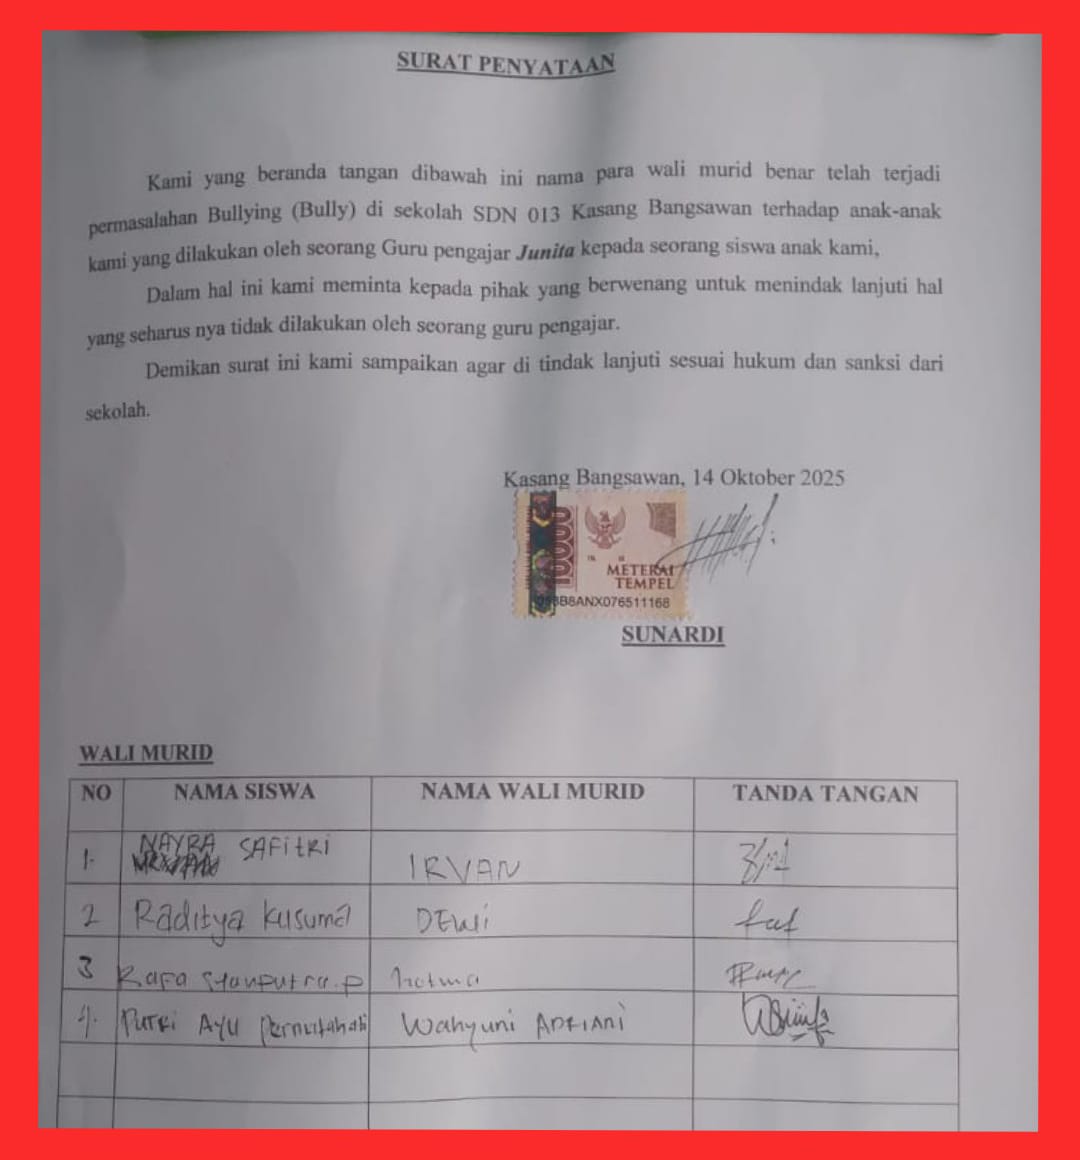 SURAT PENYATAAN
Kami yang beranda tangan dibawah ini nama para wali murid benar telah terjadi
permasalahan Bullying (Bully) di sekolah SDN 013 Kasang Bangsawan terhadap anak-anak
kami yang dilakukan oleh seorang Guru pengajar Junita kepada seorang siswa anak kami,
Dalam hal ini kami meminta kepada pihak yang berwenang untuk menindak lanjuti hal
yang seharus nya tidak dilakukan oleh seorang guru pengajar.
Demikan surat ini kami sampaikan agar di tindak lanjuti sesuai hukum dan sanksi dari
sekolah.
Kasang Bangsawan, 14 Oktober 2025
10000
METERAI
TEMPEL
B8ANX076511168
SUNARDI
WALI MURID
NO NAMA SISWA NAMA WALI MURID TANDA TANGAN
1. NAYRA SAFITRI IRVAN
2 Raditya Kusuma DEWI
3 Rafa Syahputra.P hotma
4. PUTRI AYU Wahyuni ADRIANI